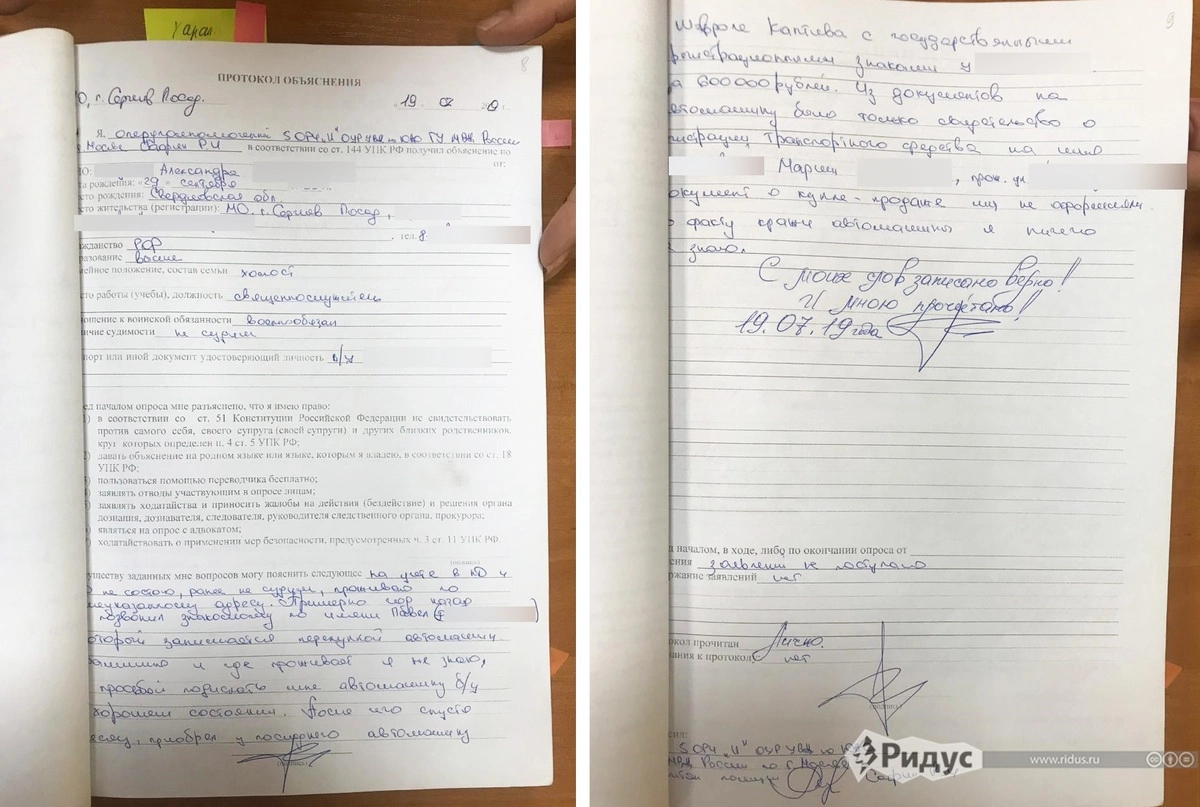 Харак
8
ПРОТОКОЛ ОБЪЯСНЕНИЯ
О, г. Сергиев Посад.
19. 07 20 г.
Я, оперуполномоченный 5 ОРЧ "И" ОУР УВД по ЮАО ГУ МВД России
Москве Сафин Р.И в соответствии со ст. 144 УПК РФ получил объяснение по
от:
О: Александра
та рождения: «29» сентября
сто рождения: Свердловская обл.
сто жительства (регистрации): МО. г. Сергиев Посад,
, тел. 8.
жданство РФ
разование высшее
ейное положение, состав семьи холост
то работы (учебы), должность священнослужитель
ношение к воинской обязанности военнообязан
ичие судимости не судим
порт или иной документ удостоверяющий личность в/у
ед началом опроса мне разъяснено, что я имею право:
) в соответствии со ст. 51 Конституции Российской Федерации не свидетельствовать
против самого себя, своего супруга (своей супруги) и других близких родственников,
круг которых определен п. 4 ст. 5 УПК РФ;
) давать объяснение на родном языке или языке, которым я владею, в соответствии со ст. 18
УПК РФ;
) пользоваться помощью переводчика бесплатно;
) заявлять отводы участвующим в опросе лицам;
) заявлять ходатайства и приносить жалобы на действия (бездействие) и решения органа
дознания, дознавателя, следователя, руководителя следственного органа, прокурора;
) являться на опрос с адвокатом;
) ходатайствовать о применении мер безопасности, предусмотренных ч. 3 ст. 11 УПК РФ.
(подпись)
уществу заданных мне вопросов могу пояснить следующее на учете в ПД и
не состою, ранее не судим, проживаю по
шеуказанному адресу. Примерно год назад
позвонил знакомому по имени Павел (
оторой занимается перекупкой автомашин
фамилию и где проживает я не знаю,
просьбой подискать мне автомашину б/у
хорошем состоянии. После чего спустя
есяц, приобрел у последнего автомашину
(подпись)
9
Шевроле Каптива с государственными
регистрационными знаками У
за 600 000 рублей. Из документов на
автомашину было только свидетельство о
гистрации транспортного средства на имя
Марии , прож. ул
окумент о купле-продаже мы не оформляли.
о факту кражи автомашины я ничего
знаю.
С моих слов записано верно!
И мною прочитано!
19.07.19 года
д началом, в ходе, либо по окончании опроса от
ения заявлений не поступало
ржание заявлений нет
окол прочитан Лично.
ания к протоколу нет
(подпись)
сил:
5 ОРЧ "И" ОУР УВД по ЮАО
МВД России по г. Москве
полиции Сафин
Ридус
www.ridus.ru